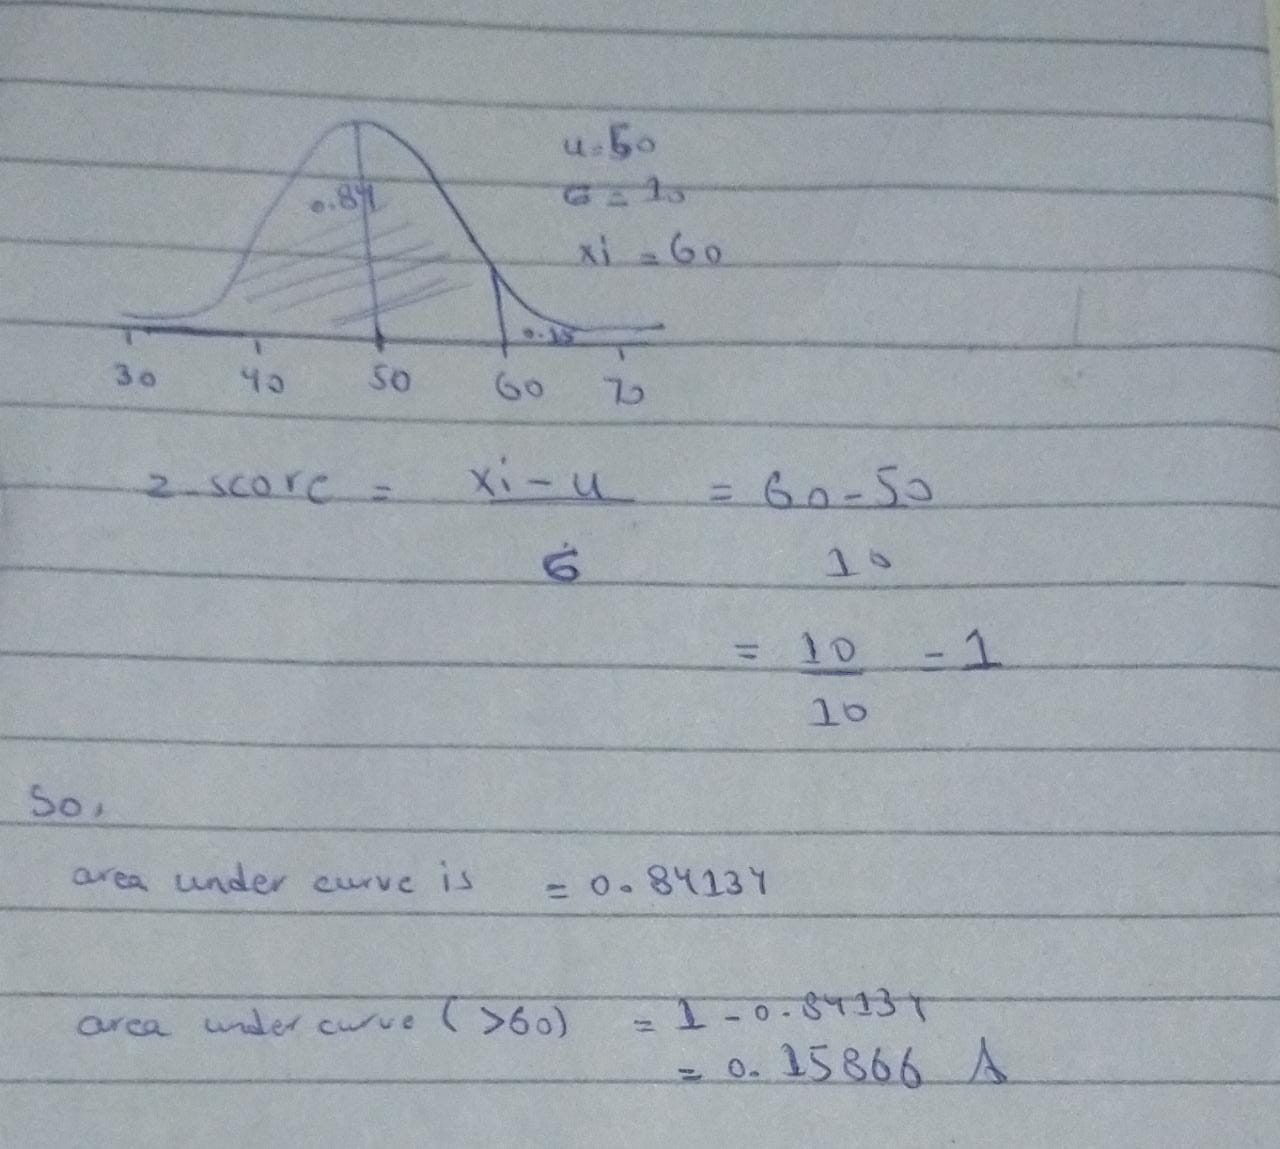 u=50
σ = 10
xi = 60
0.84
0.15
30 40 50 60 70
z-score = xi - u = 60-50
σ 10
= 10 = 1
10
So,
area under curve is = 0.84134
area under curve (>60) = 1-0.84134
= 0.15866 A